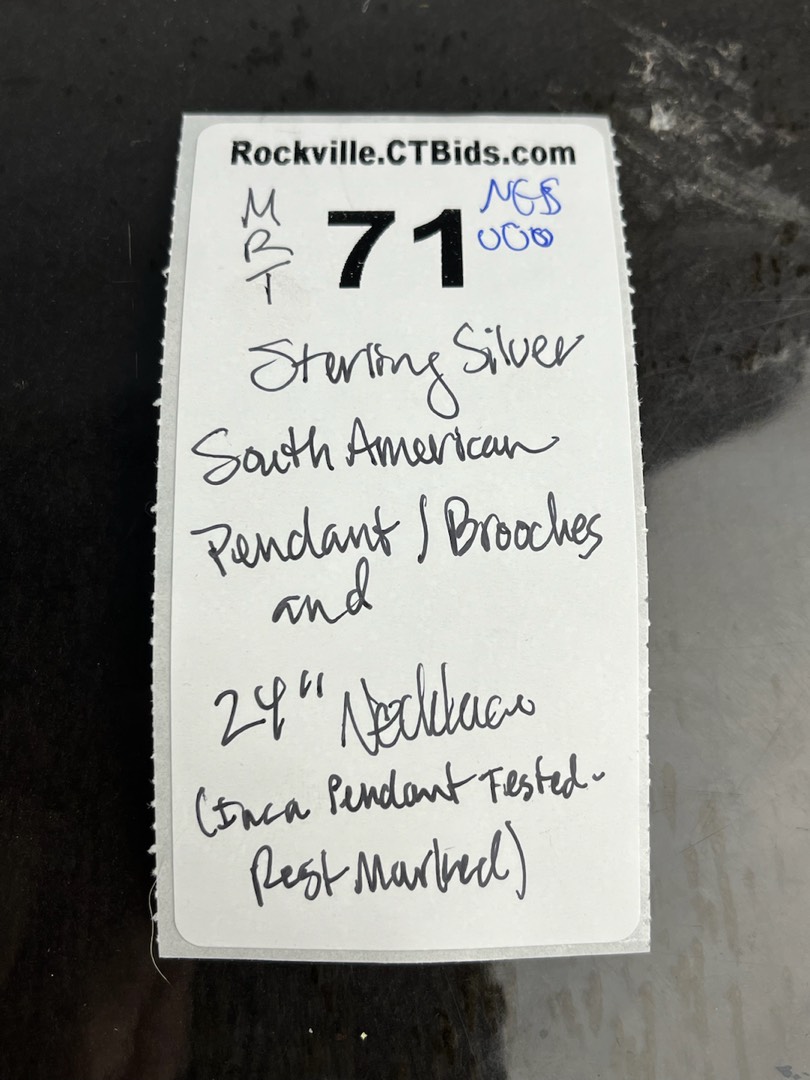 Rockville.CTBids.com
M
R
T
71
000
Sterling Silver
South American
Pendant / Brooches
and
24" Necklace
(Inca Pendant Tested -
Rest Marked)